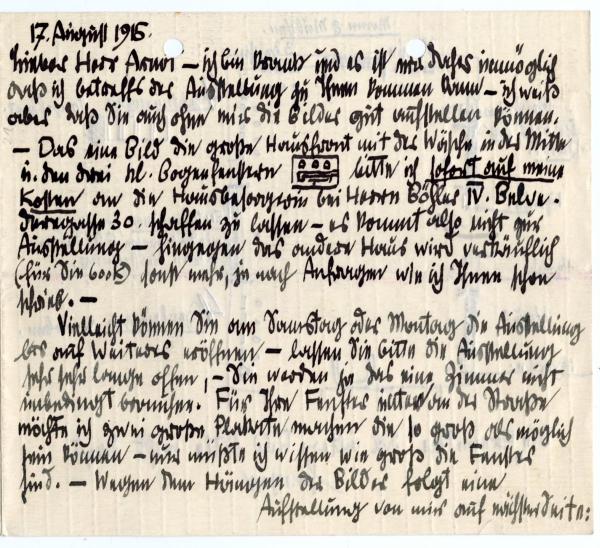 17. August 1915.
Lieber Herr Arnot – ich bin krank und es ist mir daher unmöglich
daß ich betreffs der Ausstellung zu Ihnen kommen kann – ich weiß
aber daß Sie auch ohne mir die Bilder gut aufstellen können.
– Das eine Bild die große Hausfront mit der Wäsche in der Mitte
u. den drei kl. Bogenfenstern bitte ich sofort auf meine
Kosten an die Hausbesorgerin bei Herrn Böhler IV. Belve-
deregasse 30. schaffen zu lassen – es kommt also nicht zur
Ausstellung – hingegen das andere Haus wird verkäuflich
(für Sie 600K) sonst mehr, je nach Anfragen wie ich Ihnen schon
schrieb. –
Vielleicht können Sie am Samstag oder Montag die Ausstellung
bis auf Weiteres eröffnen – lassen Sie bitte die Ausstellung
sehr sehr lange offen, – Sie werden ja das eine Zimmer nicht
unbedingt brauchen. Für Ihre Fenster unten an der Straße
möchte ich zwei große Plakate machen die so groß als möglich
sein können – nur müßte ich wissen wie groß die Fenster
sind. – Wegen dem Hängen der Bilder folgt eine
Aufstellung von mir auf nächster Seite: